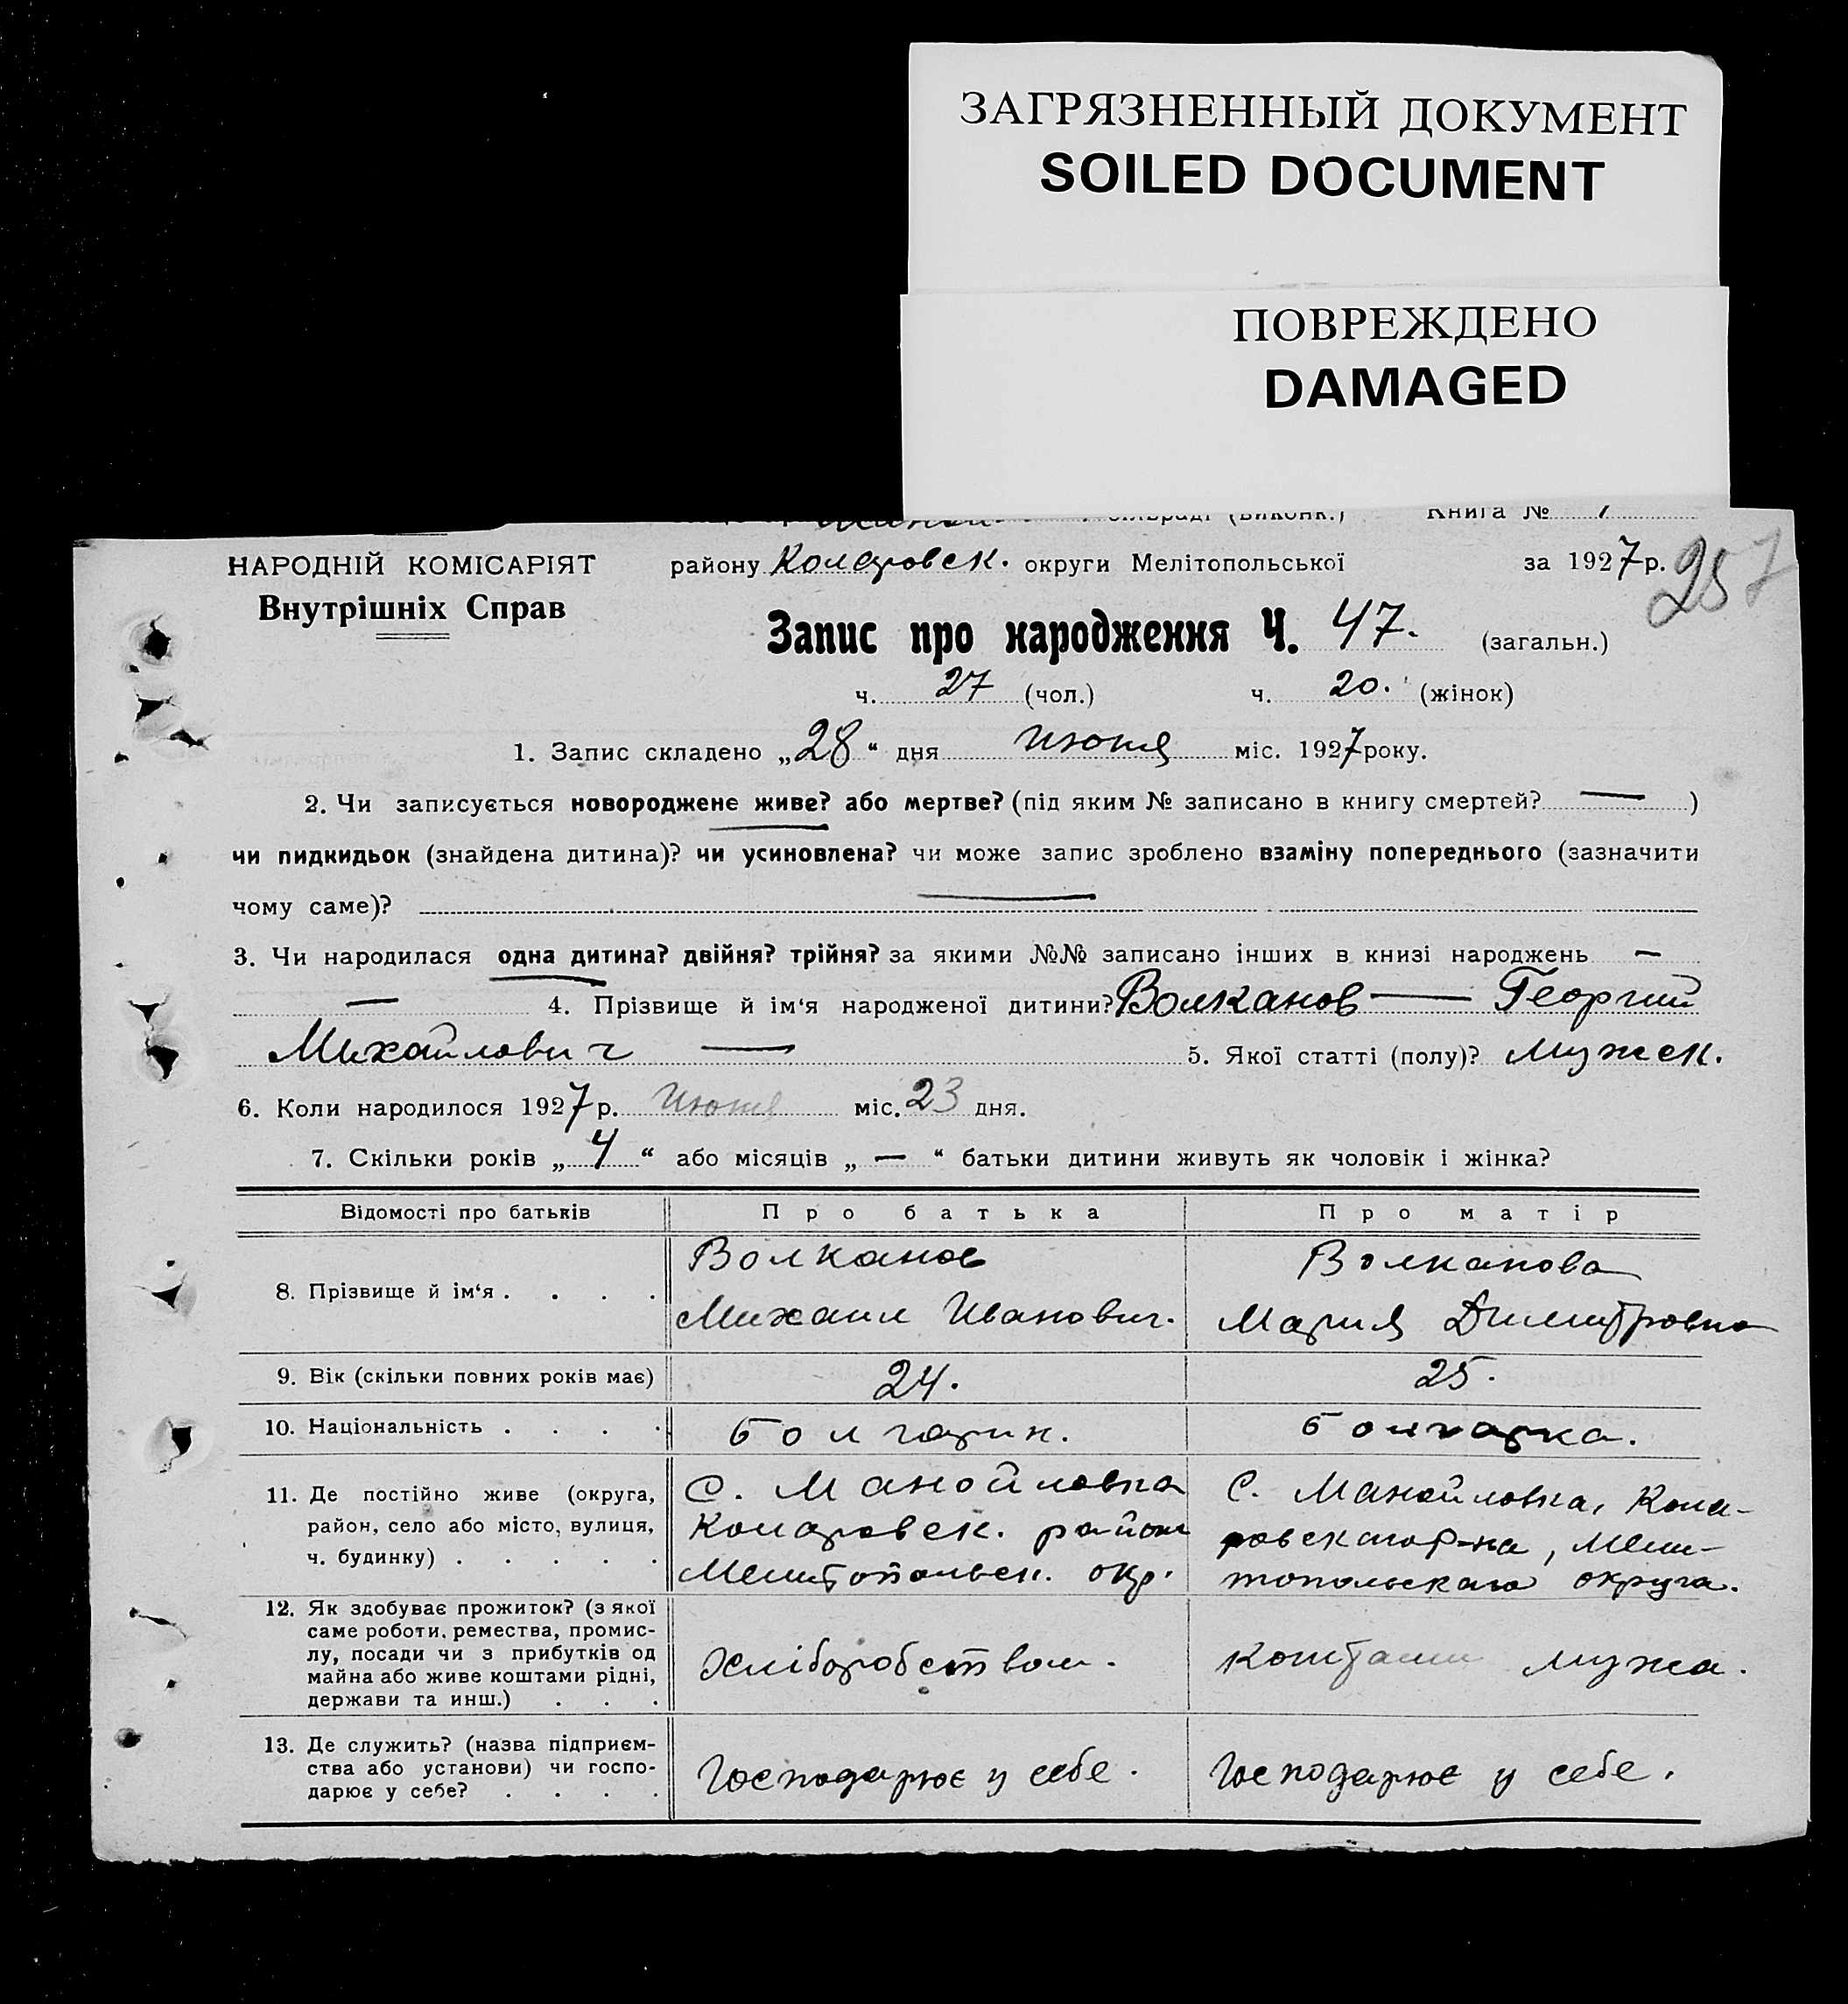 ЗАГРЯЗНЕННЫЙ ДОКУМЕНТ
SOILED DOCUMENT
ПОВРЕЖДЕНО
DAMAGED
сільраді (виконк.) Книга № 1
НАРОДНІЙ КОМІСАРІЯТ
Внутрішніх Справ
району Комаровск. округи Мелітопольської за 1927 р.
257
Запис про народження Ч. 47. (загальн.)
ч. 27 (чол.) ч. 20. (жінок)
1. Запис складено „28“ дня Июня міс. 1927 року.
2. Чи записується новороджене живе? або мертве? (під яким № записано в книгу смертей? — )
чи пидкидьок (знайдена дитина)? чи усиновлена? чи може запис зроблено взаміну попереднього (зазначити
чому саме)? —
3. Чи народилася одна дитина? двійня? трійня? за якими №№ записано інших в книзі народжень —
— 4. Прізвище й ім‘я народженої дитини? Волканов — Георгий
Михайлович — 5. Якої статті (полу)? Мужск.
6. Коли народилося 1927 р. Июня міс. 23 дня.
7. Скільки років „4“ або місяців „ — “ батьки дитини живуть як чоловік і жінка?
Відомості про батьків Про батька Про матір
8. Прізвище й ім‘я . . . .
Волканов
Михаил Иванович.
Волканова
Мария Димитровна
9. Вік (скільки повних років має) 24. 25.
10. Національність . . . . болгарин. болгарка.
11. Де постійно живе (округа,
район, село або місто, вулиця,
ч. будинку) . . . . .
С. Манойловка
Комаровск. район
Мелитопольск. окр.
С. Манойловка, Кома-
ровскаго р-на, Мели-
топольскаго округа.
12. Як здобуває прожиток? (з якої
саме роботи, ремества, промис-
лу, посади чи з прибутків од
майна або живе коштами рідні,
держави та инш.) . . .
Хліборобством.
Коштами мужа.
13. Де служить? (назва підприєм-
ства або установи) чи госпо-
дарює у себе? . . . .
Господарює у себе.
Господарює у себе.